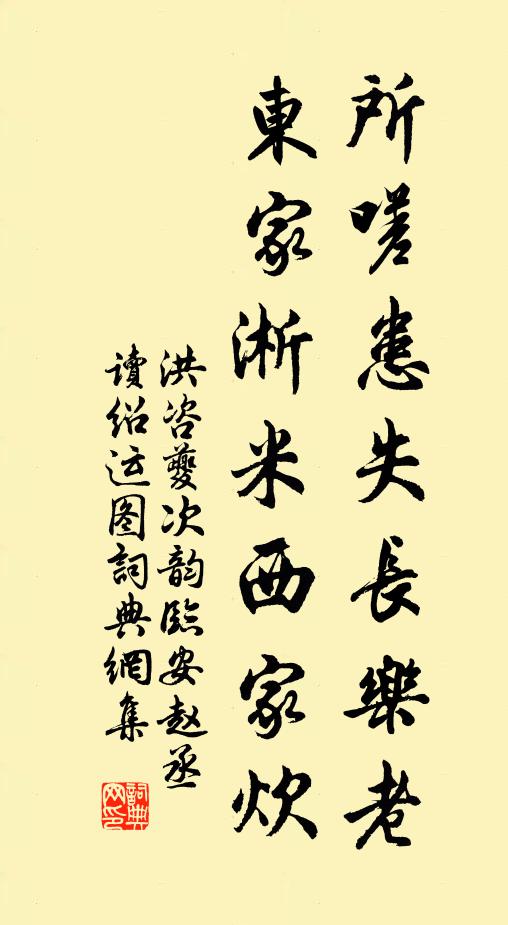 所嗟患失長樂老
東家淅米西家炊
洪咨夔次韵臨安趙丞
讀绍运图詞典網集
詞典网印